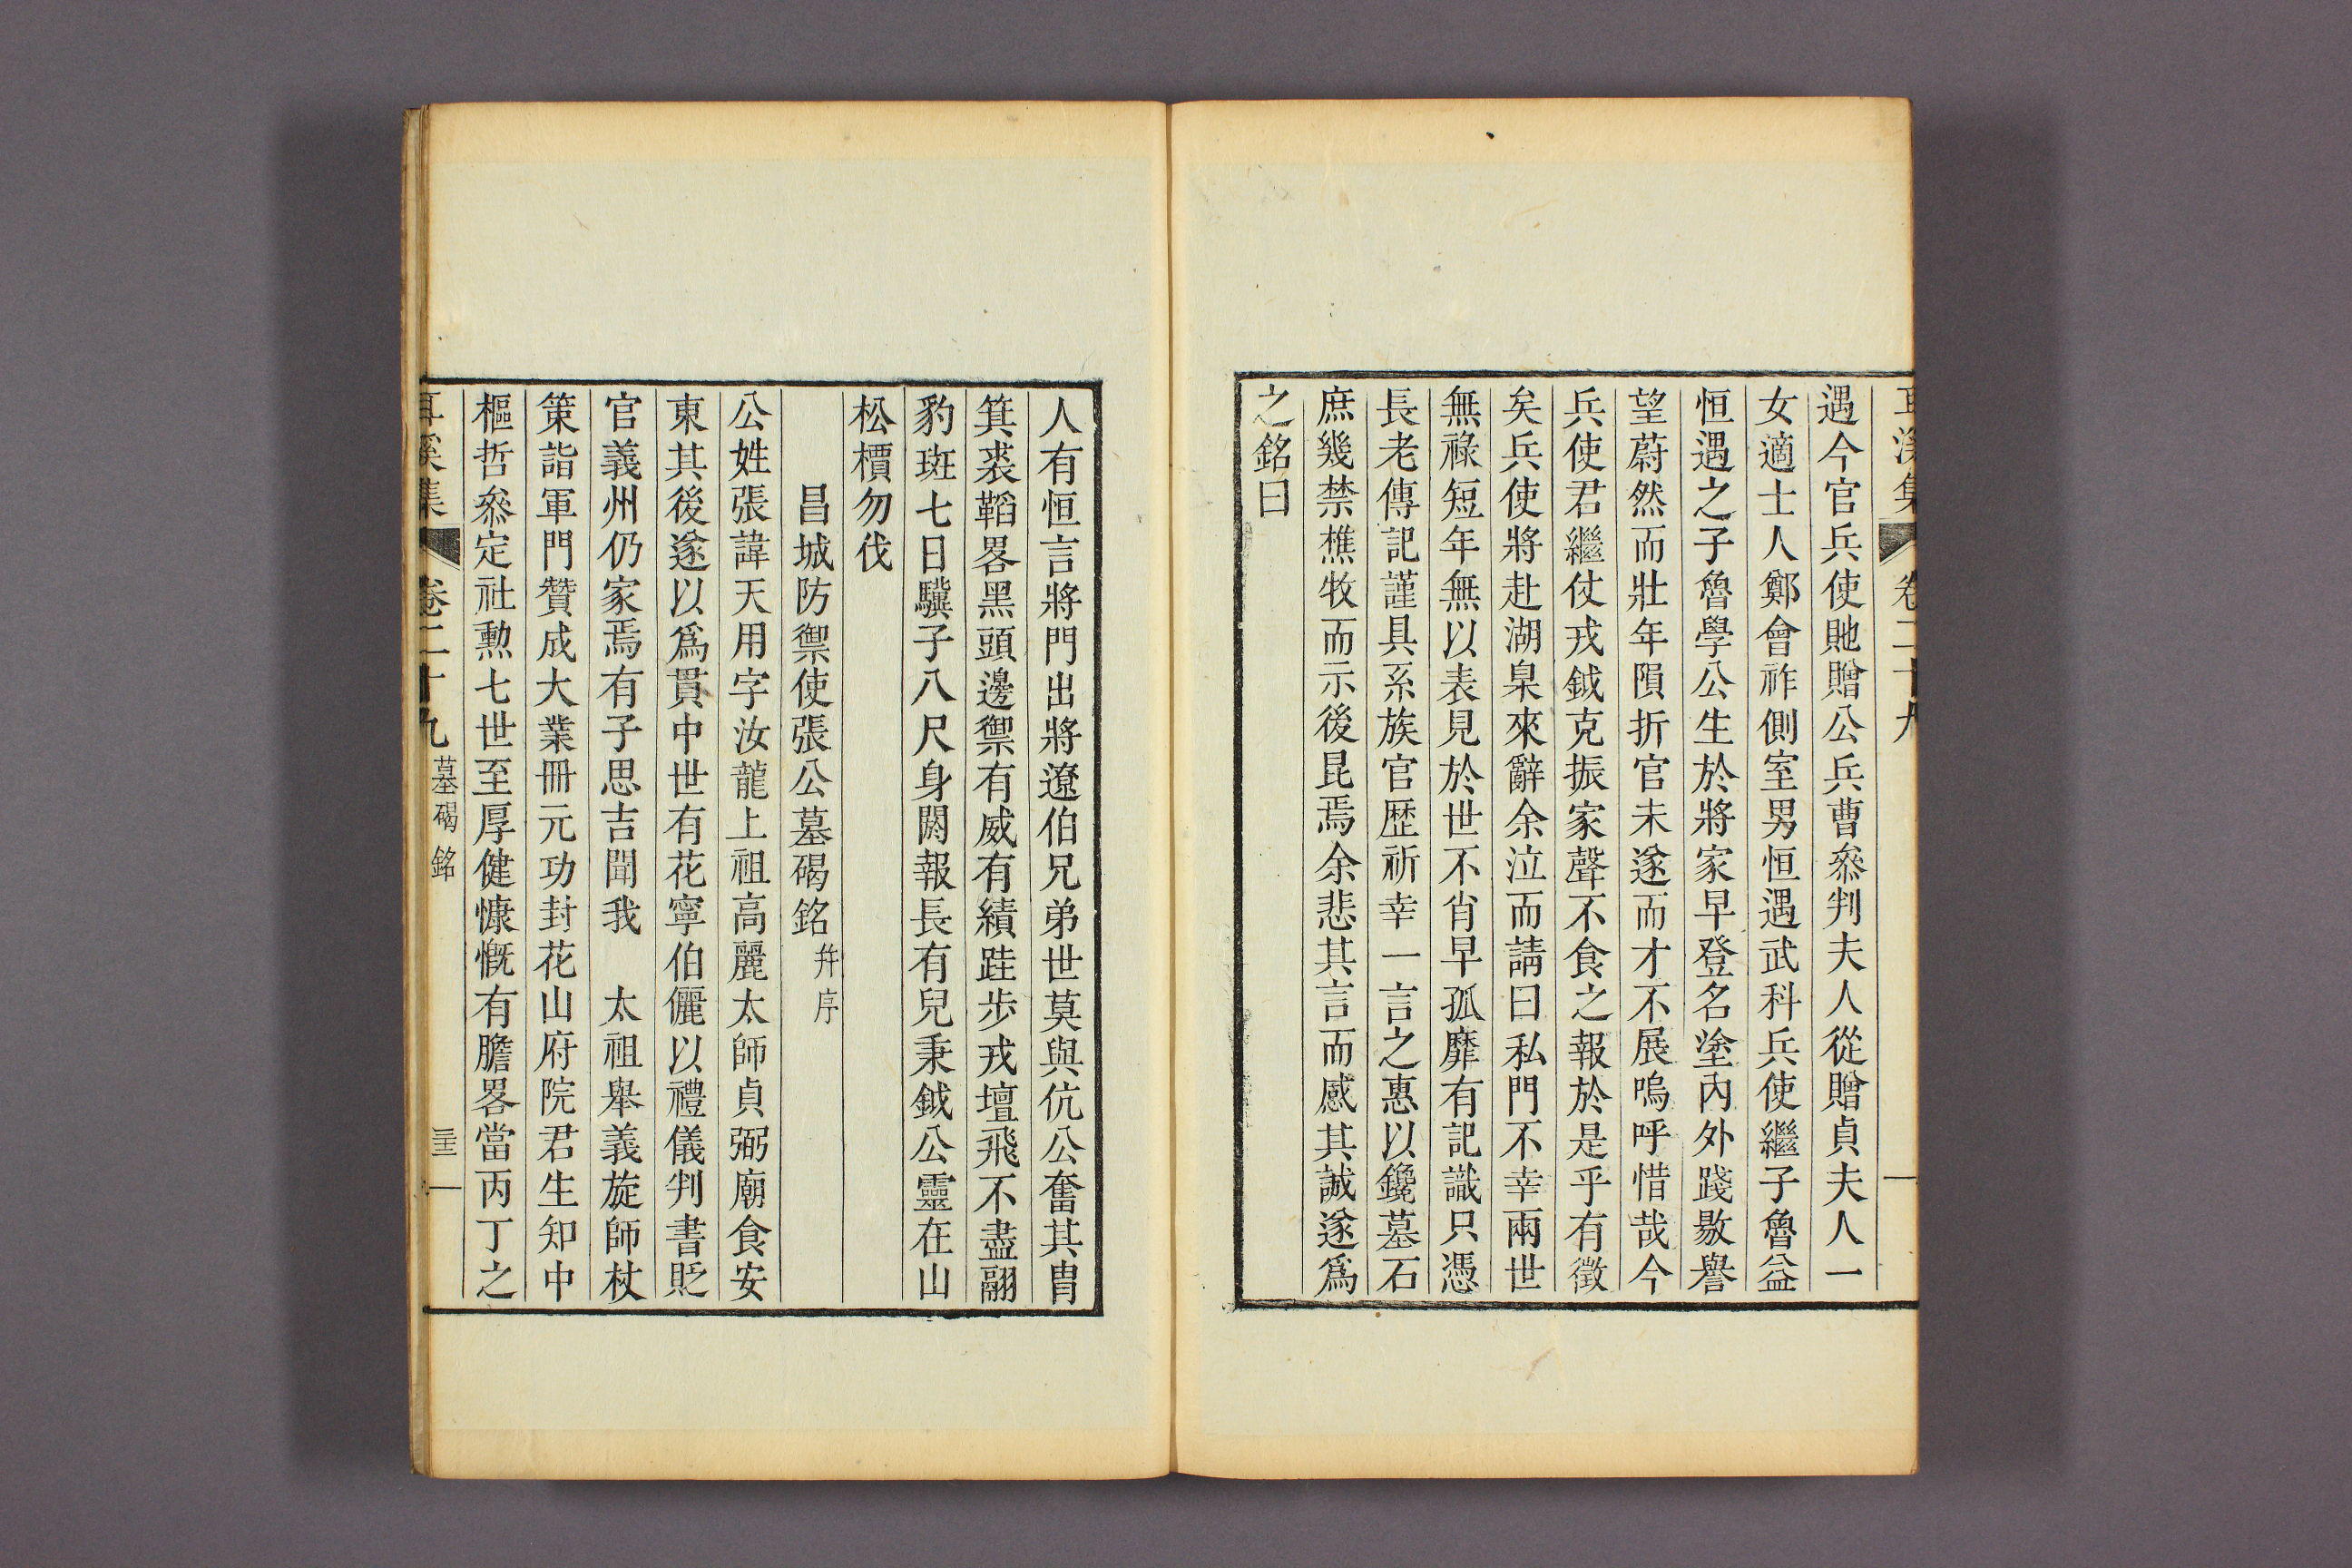 遇今官兵使貤贈公兵曹叅判夫人從贈貞夫人一
女適士人鄭會祚側室男恒遇武科兵使繼子魯益
恒遇之子魯學公生於將家早登名塗內外踐敭譽
望蔚然而壯年隕折官未遂而才不展嗚呼惜哉今
兵使君繼仗戎鉞克振家聲不食之報於是乎有徵
矣兵使將赴湖臬來辭余泣而請曰私門不幸兩世
無祿短年無以表見於世不肖早孤靡有記識只憑
長老傳記謹具系族官歷祈幸一言之惠以鑱墓石
庶幾禁樵牧而示後昆焉余悲其言而感其誠遂爲
之銘曰
人有恒言將門出將遼伯兄弟世莫與伉公奮其胄
箕裘韜畧黑頭邊禦有威有績跬步戎壇飛不盡翮
豹斑七日驥子八尺身閼報長有兒秉鉞公靈在山
松檟勿伐
昌城防禦使張公墓碣銘幷序
公姓張諱天用字汝龍上祖高麗太師貞弼廟食安
東其後遂以爲貫中世有花寧伯儷以禮儀判書貶
官義州仍家焉有子思吉聞我 太祖舉義旋師杖
策詣軍門贊成大業冊元功封花山府院君生知中
樞哲叅定社勲七世至厚健慷慨有膽畧當丙丁之
耳溪集 卷二十九 墓碣銘